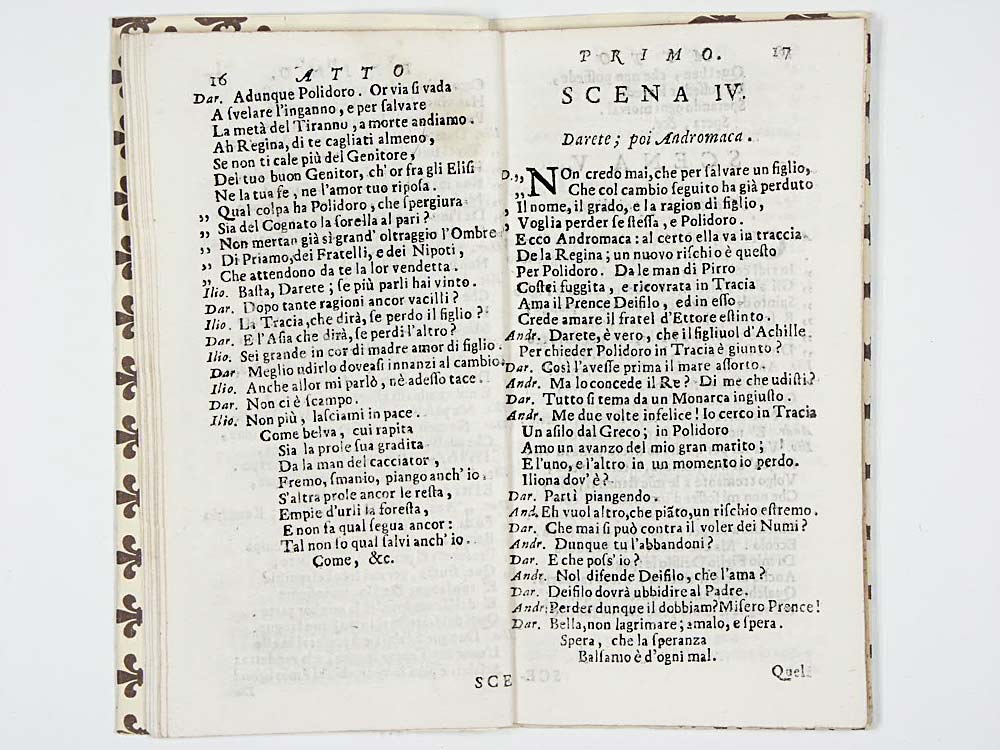 16 ATTO
Dar. Adunque Polidoro. Or via ſi vada
A ſvelare l'inganno, e per ſalvare
La metà del Tiranno, a morte andiamo.
Ah Regina, di te cagliati almeno,
Se non ti cale più del Genitore,
Del tuo buon Genitor, ch'or fra gli Eliſi
Ne la tua fe, ne l'amor tuo ripoſa.
„ Qual colpa ha Polidoro, che ſpergiura
„ Sia del Cognato la ſorella al pari?
„ Non mertan già sì grand' oltraggio l'Ombre
„ Di Priamo, dei Fratelli, e dei Nipoti,
„ Che attendono da te la lor vendetta.
Ilio. Baſta, Darete; ſe più parli hai vinto.
Dar. Dopo tante ragioni ancor vacilli?
Ilio. La Tracia, che dirà, ſe perdo il figlio?
Dar. E l'Aſia che dirà, ſe perdi l'altro?
Ilio. Sei grande in cor di madre amor di figlio.
Dar Meglio udirlo doveaſi innanzi al cambio.
Ilio. Anche allor mi parlò, nè adeſſo tace.
Dar. Non ci è ſcampo.
Ilio. Non più, laſciami in pace.
Come belva, cui rapita
Sia la prole ſua gradita
Da la man del cacciator,
Fremo, ſmanio, piango anch' io.
S'altra prole ancor le reſta,
Empie d'urli la foreſta,
E non ſa qual ſegua ancor:
Tal non ſo qual ſalvi anch' io.
Come, &c.
SCE-
PRIMO. 17
SCENA IV.
Darete; poi Andromaca.
D. „ NOn credo mai, che per ſalvare un figlio,
„ Che col cambio ſeguito ha già perduto
, Il nome, il grado, e la ragion di figlio,
, Voglia perder ſe ſteſſa, e Polidoro.
Ecco Andromaca: al certo ella va in traccia
De la Regina; un nuovo riſchio è queſto
Per Polidoro. Da le man di Pirro
Coſtei fuggita, e ricovrata in Tracia
Ama il Prence Deifilo, ed in eſſo
Crede amare il fratel d'Ettore eſtinto.
Andr. Darete, è vero, che il figliuol d'Achille
Per chieder Polidoro in Tracia è giunto?
Dar. Così l'aveſſe prima il mare aſſorto.
Andr. Ma lo concede il Re? Di me che udiſti?
Dar. Tutto ſi tema da un Monarca ingiuſto.
Andr. Me due volte infelice! Io cerco in Tracia
Un aſilo dal Greco; in Polidoro
Amo un avanzo del mio gran marito;
E l'uno, e l'altro in un momento io perdo.
Iliona dov' è?
Dar. Partì piangendo.
And. Eh vuol altro, che piãto, un riſchio eſtremo.
Dar. Che mai ſi può contra il voler dei Numi?
Andr. Dunque tu l'abbandoni?
Dar. E che poſs' io?
Andr. Nol difende Deifilo, che l'ama?
Dar. Deifilo dovrà ubbidire al Padre.
Andr: Perder dunque il dobbiam? Miſero Prence!
Dar. Bella, non lagrimare; amalo, e ſpera.
Spera, che la ſperanza
Balſamo è d'ogni mal.
Quel